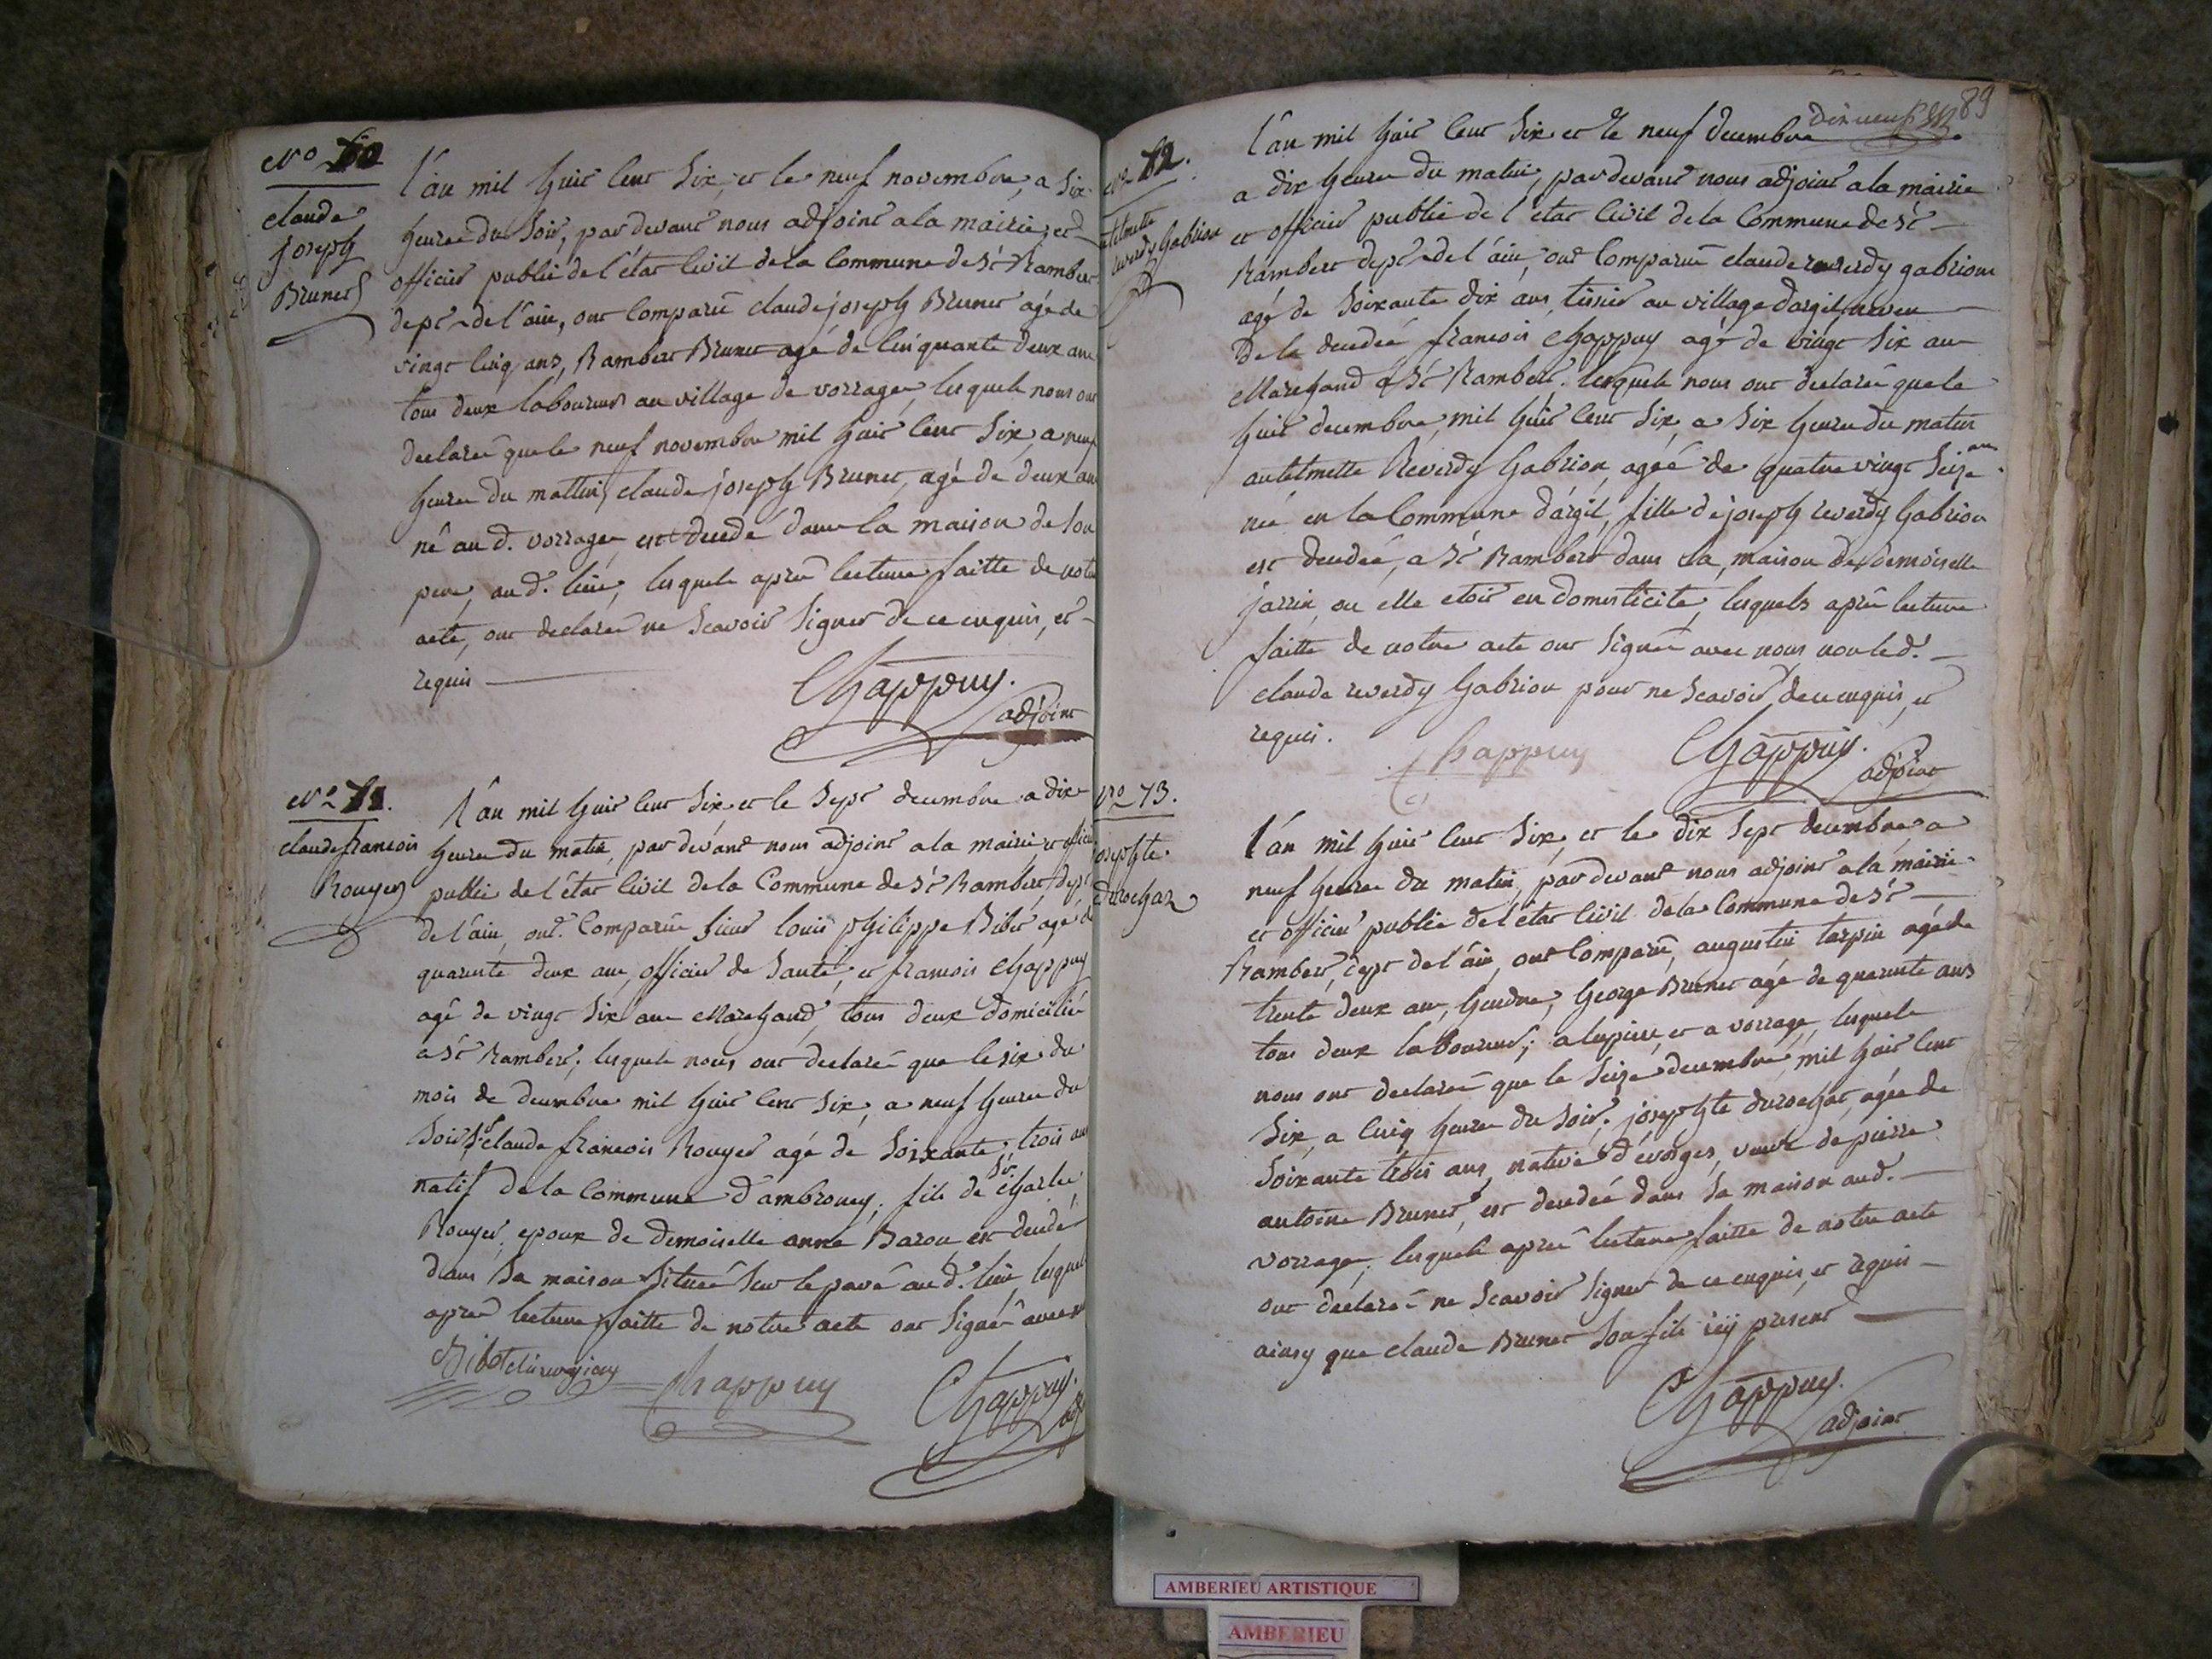 No 70
claude
joseph
Brunet
L'an mil huit cent six, et le neuf novembre, a six
heures du soir, par devant nous adjoint a la mairie, et
officier public de l'état civil de la commune de St Rambert
dept de l'ain, ont comparu claude joseph Brunet agé de
vingt cinq ans, Rambert Brunet agé de cinquante deux ans
tous deux laboureurs au village de vorrages, lesquels nous ont
declarés que le neuf novembre mil huit cent six, a neuf
heures du mattin, claude joseph Brunet, agé de deux ans
né au d. vorrages est decedé dans la maison de son
pere, au d. lieu, lesquels après lecture faitte de notre
acte, ont declarés ne scavoir signer de ce enquis, et
requis
Chappuy.
adjoint
No 71.
claude francois
Rouyer
L'an mil huit cent six, et le sept decembre a dix
heures du matin, par devant nous adjoint a la mairie et officier
public de l'état civil de la commune de St Rambert, dept
de l'ain, ont comparu sieur louis philippe Bibet agé de
quarante deux ans, officier de santé, et francois chappuy
agé de vingt six ans Marchand, tous deux domiciliés
a St Rambert; lesquels nous ont declarés que le six du
mois de decembre mil huit cent six, a neuf heures du
soir Sr claude francois Rouyer agé de soixante trois ans
natif de la commune d'ambronay, fils de Sr charles
Rouyer, epoux de demoiselle anne Baron est decedé
dans sa maison située sur le pavé au d. lieu, lesquels
après lecture faitte de notre acte ont signés avec nous
Bibet chirurgien
Chappuy
Chappuy.
adj
89
No 72.
antelmette
reverdy Gabrion
L'an mil huit cent six et le neuf decembre
a dix heures du matin, par devant nous adjoint a la mairie
et officier public de l'état civil de la commune de St
Rambert dept de l'ain, ont comparu claude reverdy gabrion
agé de soixante dix ans, tissier au village d'argit, neveu
de la decedée, francois chappuy agé de vingt six ans
Marchand a St Rambert. lesquels nous ont declarés que le
huit decembre, mil huit cent six, a six heures du matin
antelmette Reverdy Gabrion, agée de quatre vingt seize ans
née en la commune d'argit, fille de joseph reverdy Gabrion
est decedée, a St Rambert dans la maison des demoiselle
jarrin, ou elle etoit en domesticité, lesquels après lecture
faitte de notre acte ont signés avec nous non led.
claude reverdy Gabrion pour ne scavoir, de ce enquis, et
requis.
Chappuy
Chappuy.
adjoint
No 73.
josephte
durochat
L'an mil huit cent six, et le dix sept decembre, a
neuf heures du matin, par devant nous adjoint a la mairie
et officier public de l'état civil de la commune de St
Rambert, dept de l'ain, ont comparu, augustin tarpin agé de
trente deux ans, gendre, George Brunet agé de quarante ans
tous deux laboureurs; a lupieu, et a vorrage, lesquels
nous ont declarés que le seize decembre, mil huit cent
six, a cinq heures du soir, josephte durochat, agée de
soixante trois ans, native d'evosges, veuve de pierre
antoine Brunet, est decedée dans sa maison aud.
vorrage, lesquels après lecture faitte de notre acte
ont declarés ne scavoir signer de ce enquis, et requis
ainsy que claude Brunet son fils icy present
Chappuy.
adjoint
AMBERIEU ARTISTIQUE
AMBERIEU